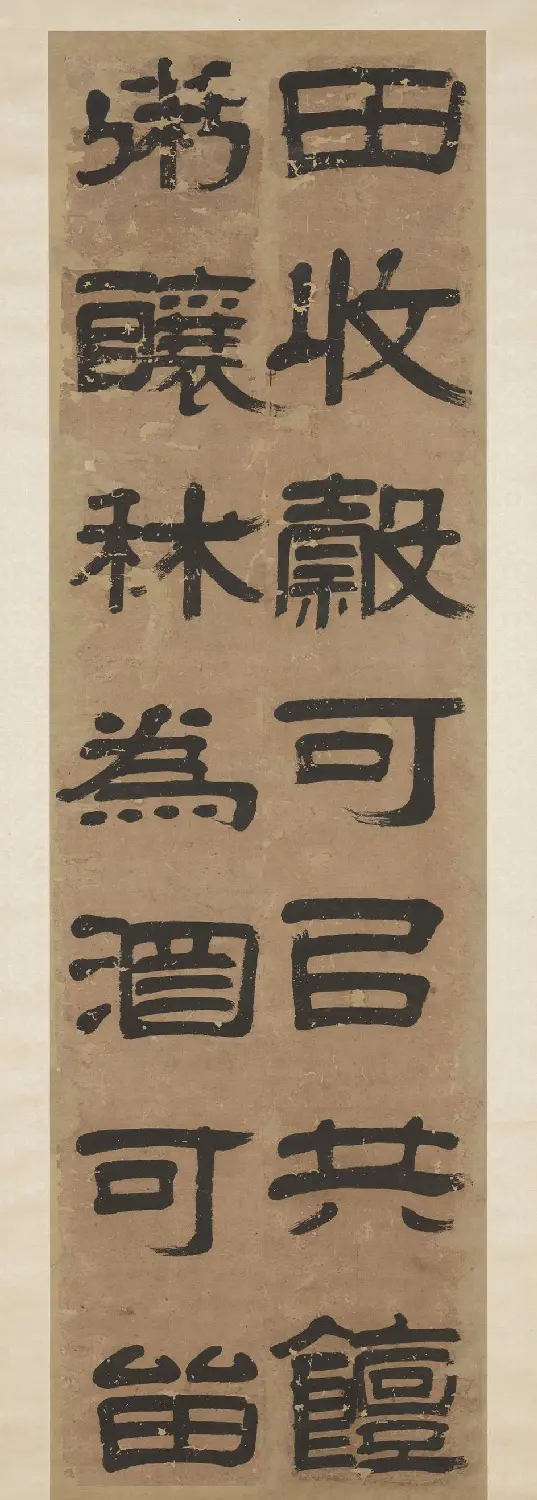 田收穀可㠯共饘
粥釀秫為酒可留